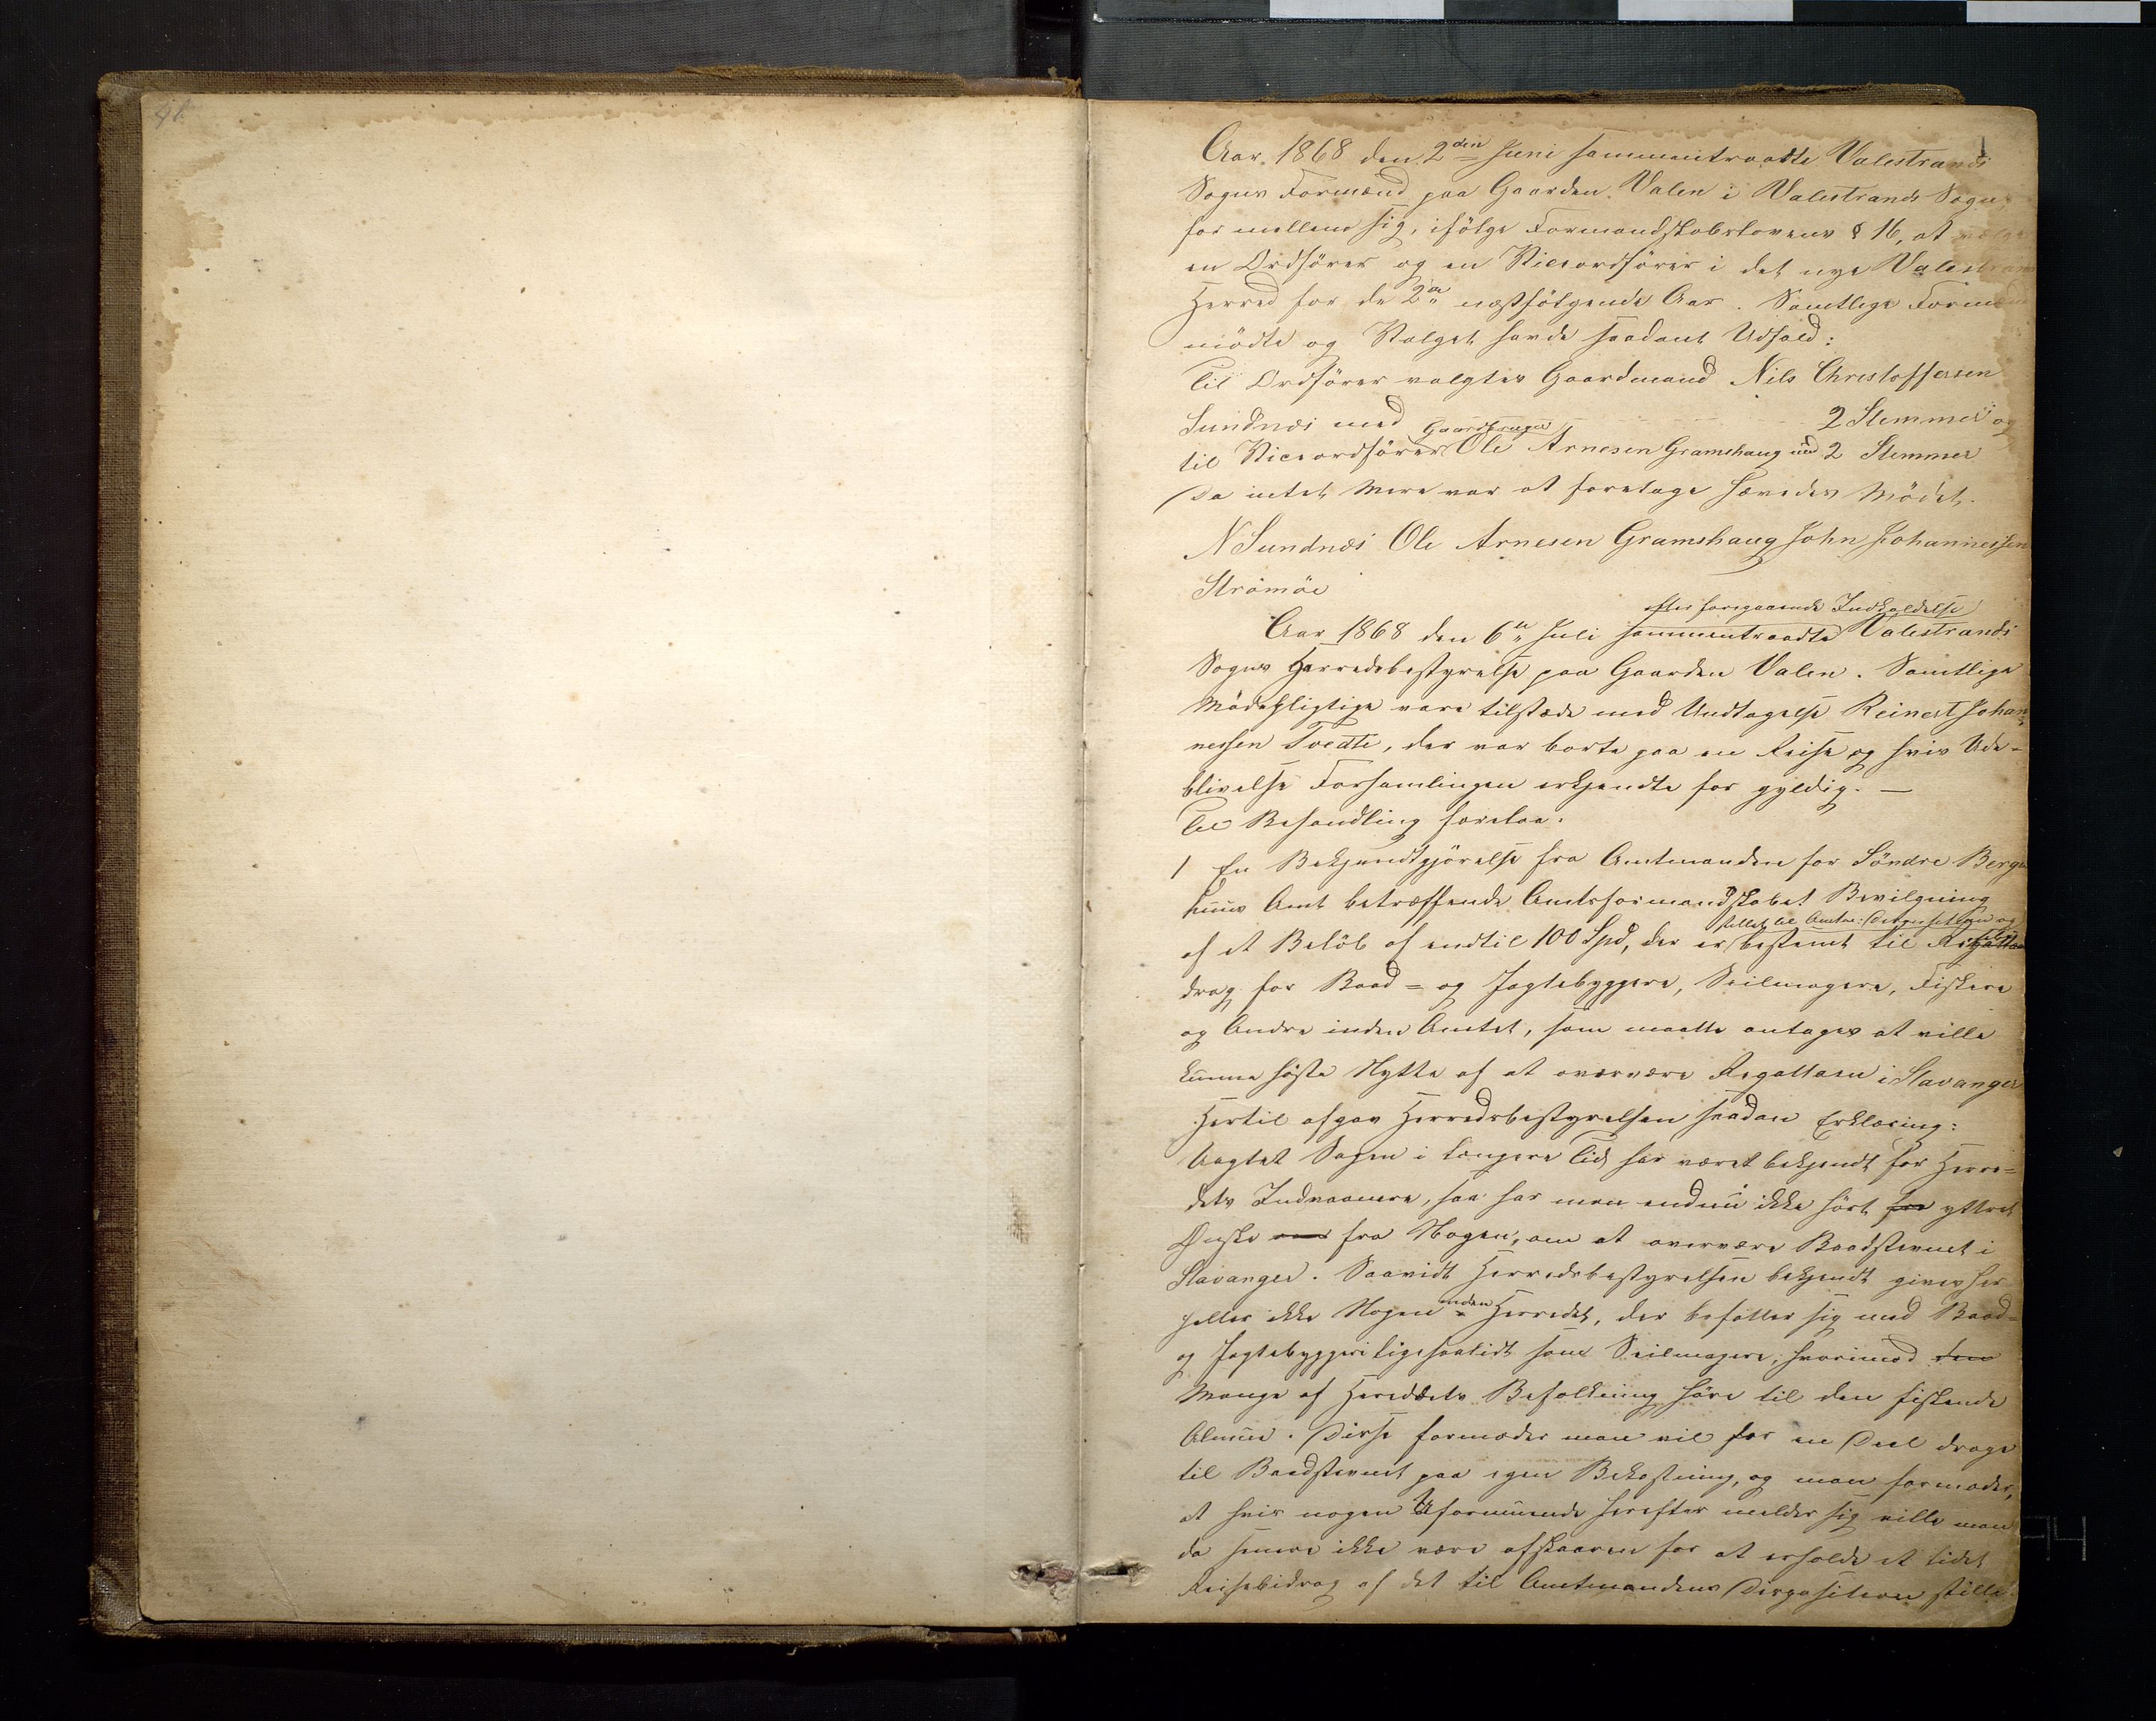 Aar 1868 den 2den Juni sammentraadte Valestrands
Sogns Formænd paa Gaarden Valen i Valestrands Sogn,
for mellem sig, ifölge Formandskabslovens § 16, at vælge
en Ordförer og en Viceordförer i det nye Valestrands
Herred for de 2de næstfölgende Aar. Samtlige Formænd
mödte og Valget havde saadant Udfald:
Til Ordförer valgtes Gaardmand Nils Christoffersen
Sundnæs med 2 Stemmer og
Gaardbruger
til Viceordförer Ole Arnesen Gramshaug med 2 Stemmer
Da intet Mere var at foretage hævedes Mödet.
N Sundnæs Ole Arnesen Gramshaug John Johannessen
Strömöe
efter foregaaende Indkaldelse
Aar 1868 den 6te Juli sammentraadte Valestrands
Sogns Herredsbestyrelse paa Gaarden Valen. Samtlige
Mödepligtige vare tilstæde med Undtagelse Reinert Johan-
nessen Tvedte, der var borte paa en Reise og hvis Ude-
blivelse Forsamlingen erkjendte for gyldig. —
Til Behandling forelaa:
1 En Bekjendtgjörelse fra Amtmanden for Söndre Bergen
huus Amt betræffende Amtsformandskabet Bevilgning
stillet til Amtm: Disposition og
af et Belöb af indtil 100 Spd, der er bestemt til Reisebi
drag for Baad- og Jagtebyggere, Seilmagere, Fiskere
og Andre inden Amtet, som maatte antages at ville
kunne höste Nytte af at overvære Regattaen i Stavanger
Hertil afgav Herredsbestyrelsen saadan Erklæring:
Uagtet Sagen i længere Tid har været bekjendt for Herre-
dets Indvaanere, saa har man endnu ikke hört for yttret
Önske fra Nogen, om at overvære Baadstevnet i
Stavanger. Saavidt Herredsbestyrelsen bekjendt gives her
heller ikke Nogen inden Herredet, der befatter sig med Baad-
og Jagtebyggeri ligesaalidt som Seilmagere, hvorimod den
Mange af Hereddets Befolkning höre til den fiskende
Almue. Disse formoder man vil for en Deel drage
til Baadstevnet paa egen Bekostning, og man formoder,
at hvis nogen Uformuende herefter melder sig ville man
da senere ikke være afskaaren for at erholde et lidet
Reisebidrag af det til Amtmandens Disposition stille